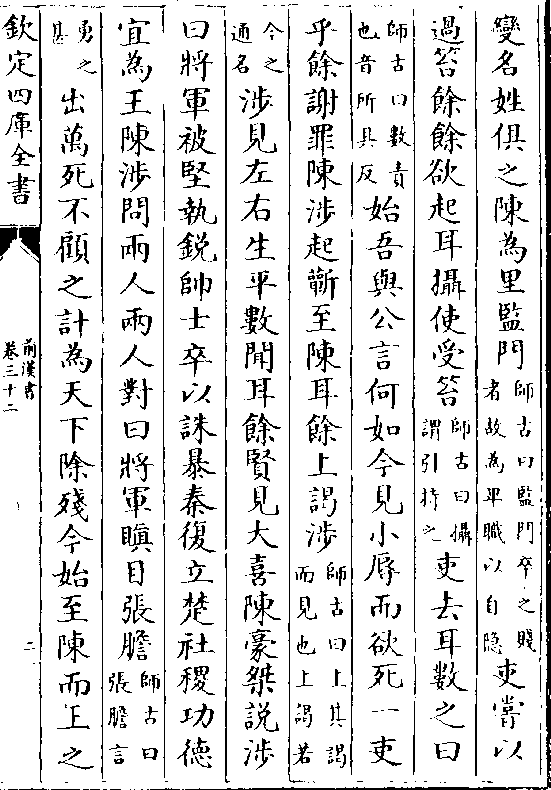 變名姓俱之陳為里監門師古曰監門卒之賤者故為卑職以自隐吏嘗以
過笞餘餘欲起耳攝使受笞師古曰攝謂引持之吏去耳數之曰
師古曰數責也音所具反始吾與公言何如今見小辱而欲死一吏
乎餘謝罪陳涉起蘄至陳耳餘上謁涉師古曰上其謁而見也上謁若
今之通名涉見左右生平數聞耳餘賢見大喜陳豪桀説涉
曰將軍被堅執鋭帥士卒以誅暴秦復立楚社稷功德
宜為王陳涉問兩人兩人對曰將軍瞋目張膽師古曰張膽言
勇之甚出萬死不顧之計為天下除殘今始至陳而王之
欽定四庫全書
前漢書
卷三十二
二